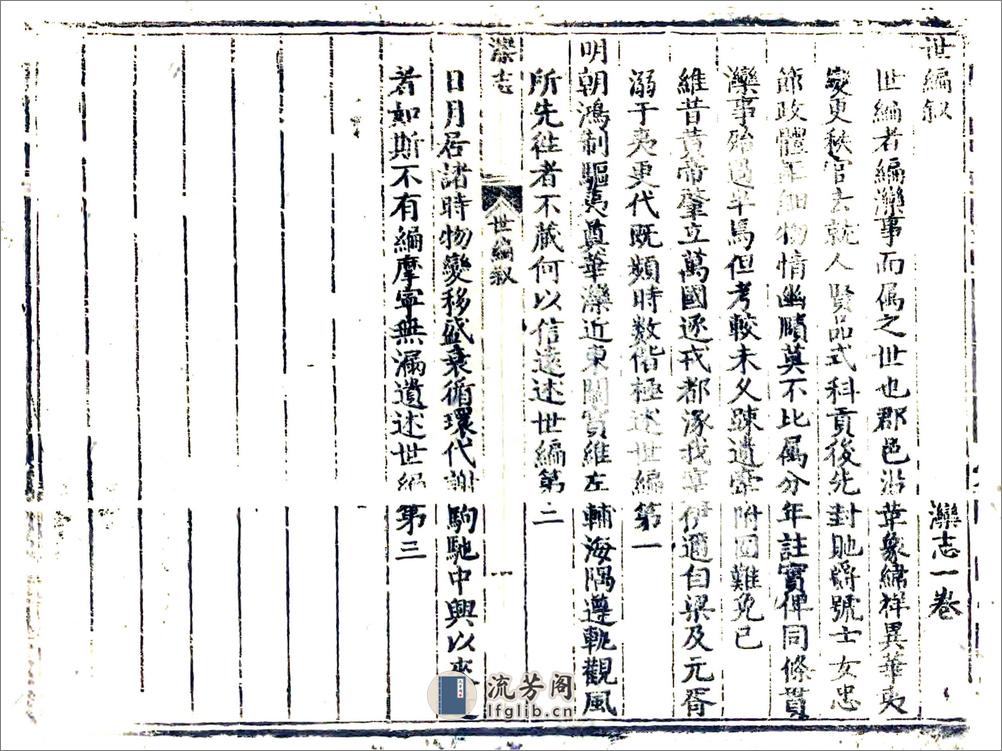 世編叙 灤志一卷
世編者編灤事而属之世也郡邑沿革象緯祥異華夷
変更秩官去就人賢品式科貢後先封貤爵號士女忠
節政體工細物情幽賾莫不比属分年註實俾同條貫
灤事殆過半焉但考較未久踈遺帶附固難免已
維昔黄帝肇立萬國逐戎都涿我寧伊邇自梁及元胥
溺于夷更代既頻時数偕極述世編第一
明朝鴻制驅夷奠華灤近東關實維左輔海隅遵軌觀風
所先徃者不蕆何以信遠述世編第二
灤志 世編叙 一
日月居諸時物變移盛衰循環代謝駒馳中興以來
若如斯不有編摩寧無漏遺述世編第三
流芳阁
lfglib.cn